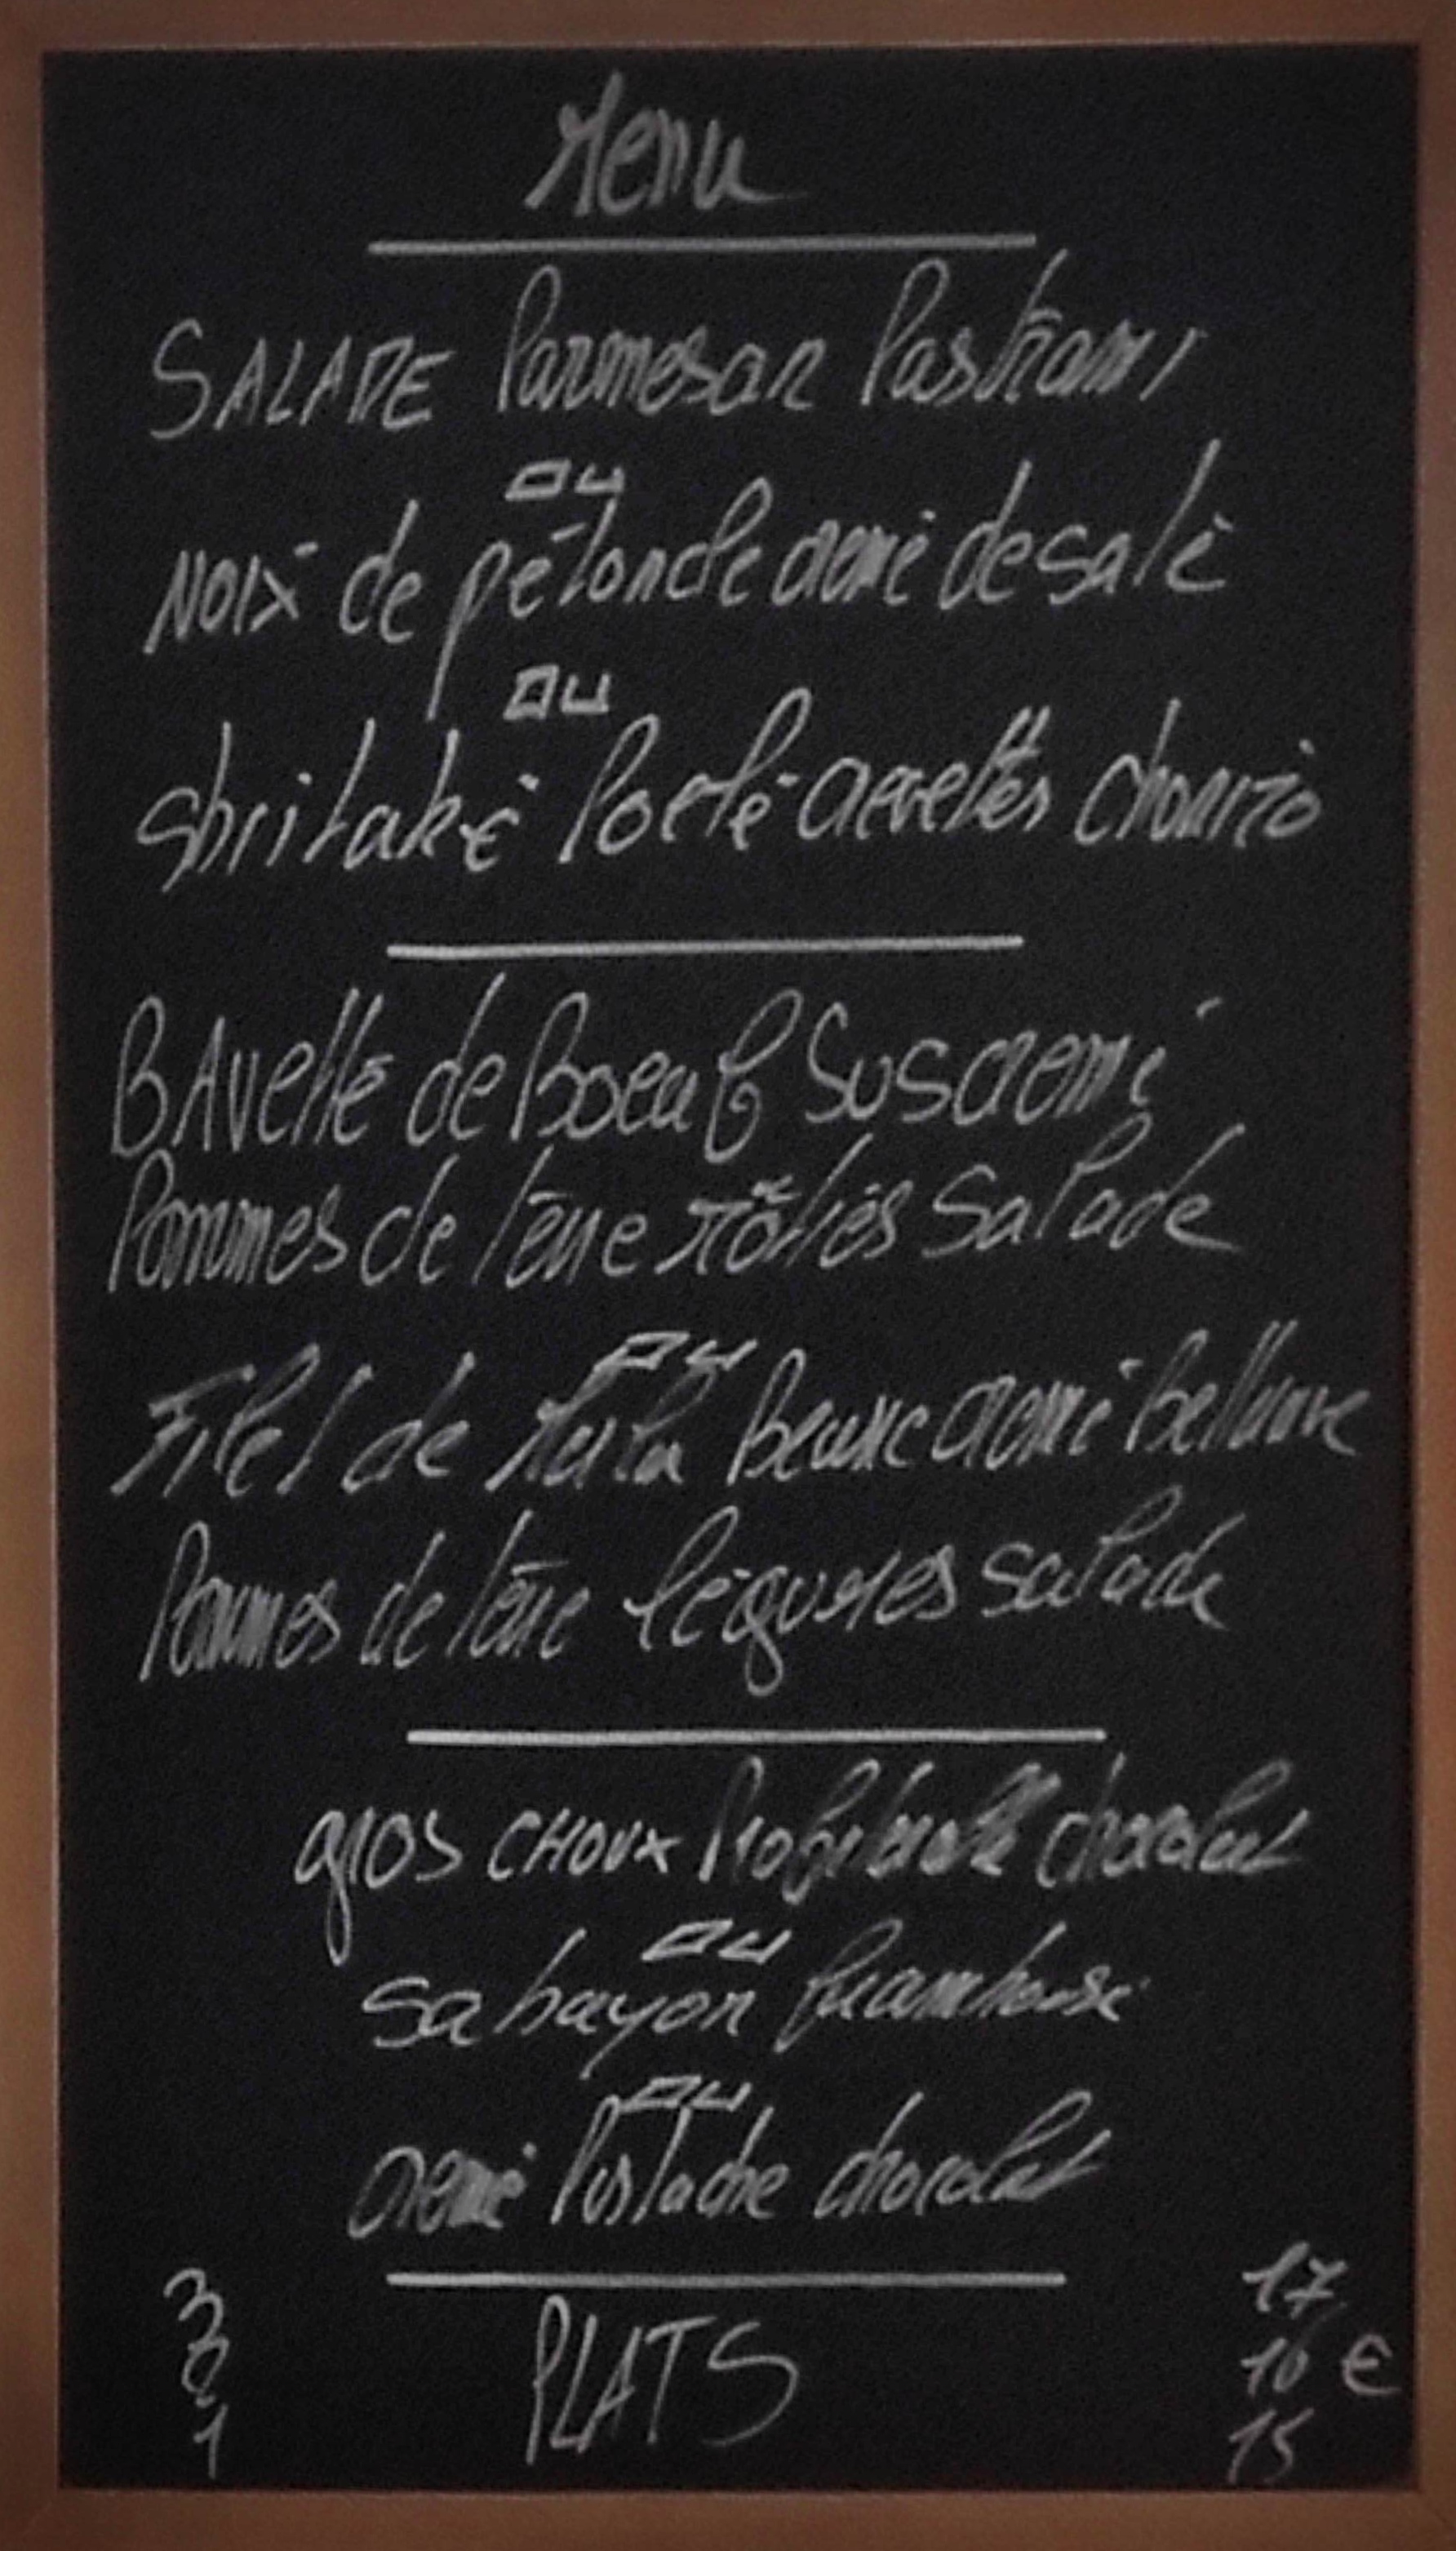 Menu
SALADE Parmesan Pastrami
ou
NOIX de pétoncle crème de salé
ou
Shiitaké Poelé crevettes chorizo
BAvette de Boeuf Sus crème
Pommes de terre rôties Salade
ou
Filet de Merlu Beurre crème
Pommes de terre légumes salade
gros CHOUX Profiterolle chocolat
ou
Sabayon framboise
ou
crème Pistache chocolat
3 17
2 PLATS 16 €
1 15